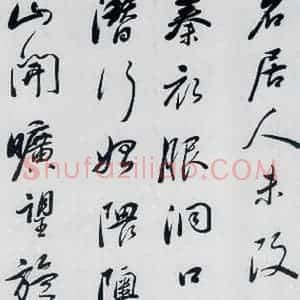 名居人未改
秦衣服洞口
潛行始隈隩
山開曠望旋
Shufaziliao.COM